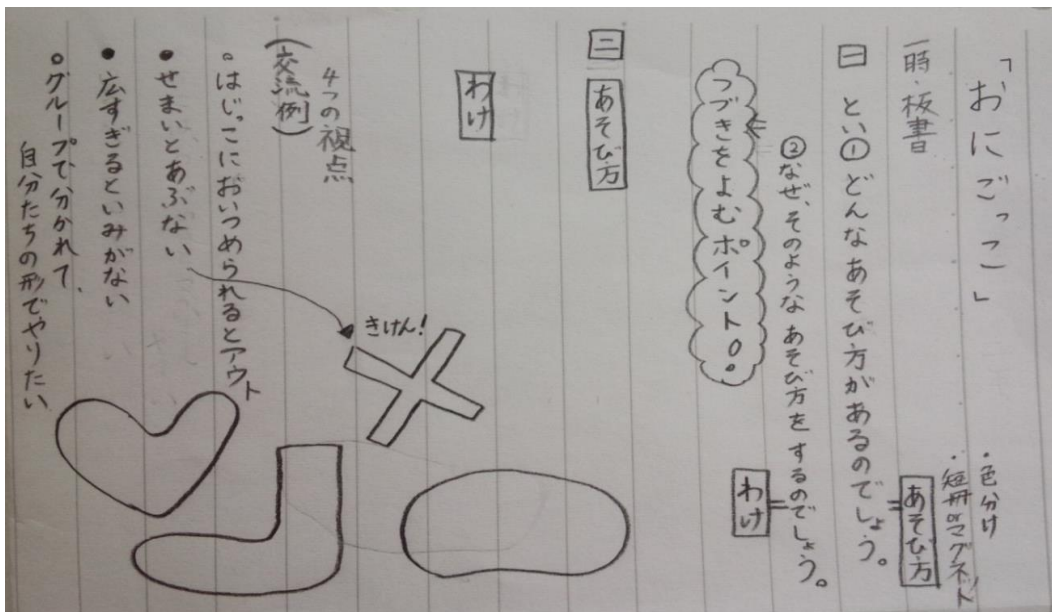 「おにごっこ」
一時・板書
・色分け
・短冊orマグネット
一 とい①どんなあそび方があるのでしょう。
あそび方
②なぜ、そのようなあそび方をするのでしょう。
わけ
つづきをよむポイント○。
二 あそび方
わけ
4つの視点
(交流例)
○はじっこにおいつめられるとアウト
●せまいとあぶない
きけん!
●広すぎるといみがない
○グループで分かれて、
自分たちの形でやりたい